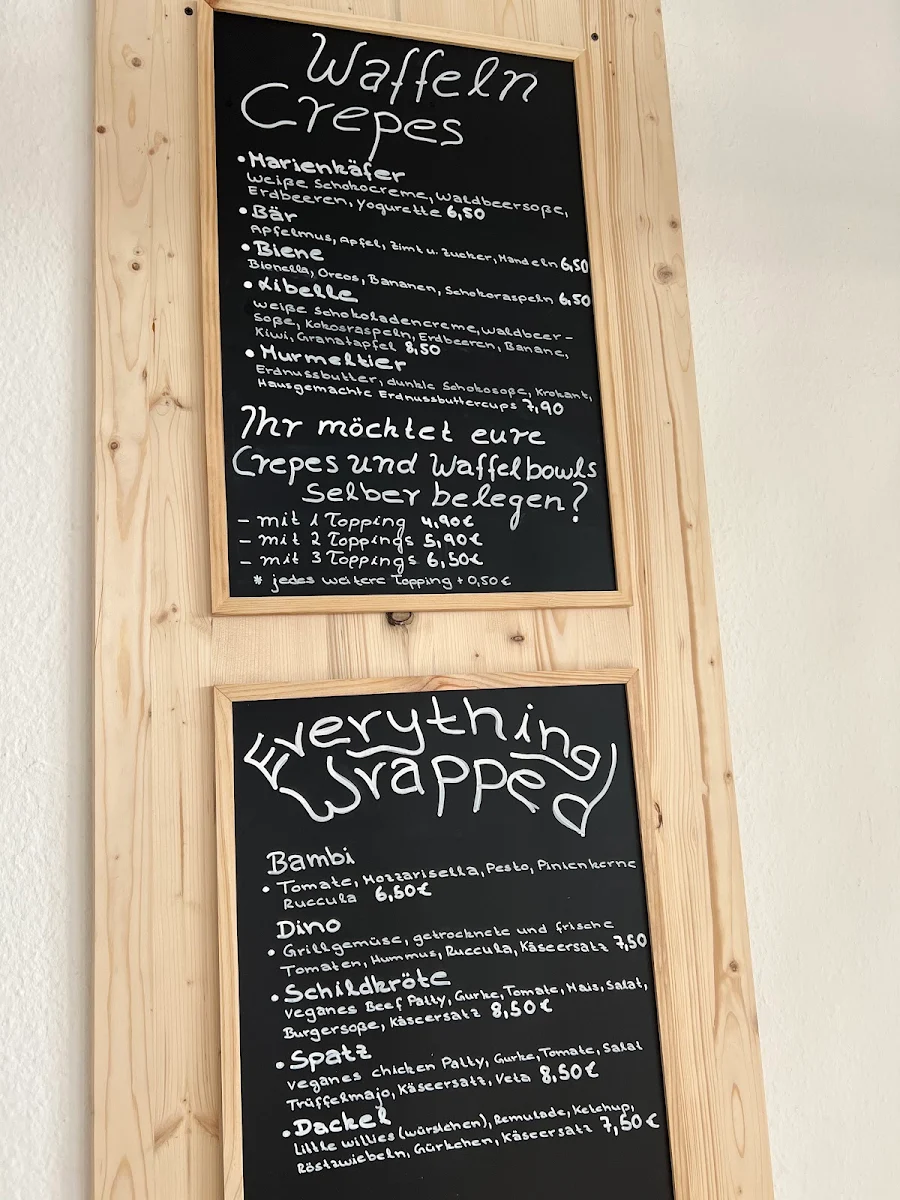 Waffeln
Crepes
• Marienkäfer
weiße Schokocreme, Waldbeersoße,
Erdbeeren, Yogurette 6,50
• Bär
Apfelmus, Apfel, Zimt u. Zucker, Mandeln 6,50
• Biene
Bionella, Oreos, Bananen, Schokoraspeln 6,50
• Libelle
weiße Schokoladencreme, Waldbeer-
soße, Kokosraspeln, Erdbeeren, Banane,
Kiwi, Granatapfel 8,50
• Murmeltier
Erdnussbutter, dunkle Schokosoße, Krokant,
Hausgemachte Erdnussbuttercups 7,90
Ihr möchtet eure
Crepes und Waffelbowls
selber belegen?
- mit 1 Topping 4,90€
- mit 2 Toppings 5,90€
- mit 3 Toppings 6,50€
* jedes weitere Topping + 0,50€
Everything
Wrapped
Bambi
• Tomate, Mozzarisella, Pesto, Pinienkerne
Ruccula 6,50€
Dino
• Grillgemüse, getrocknete und frische
Tomaten, Hummus, Ruccula, Käseersatz 7,50
• Schildkröte
veganes Beef Patty, Gurke, Tomate, Mais, Salat,
Burgersoße, Käseersatz 8,50€
• Spatz
veganes chicken Patty, Gurke, Tomate, Salat
Trüffelmajo, Käseersatz, Veta 8,50€
• Dackel
Little willies (würstchen), Remulade, Ketchup,
Röstzwiebeln, Gürkchen, Käseersatz 7,50€